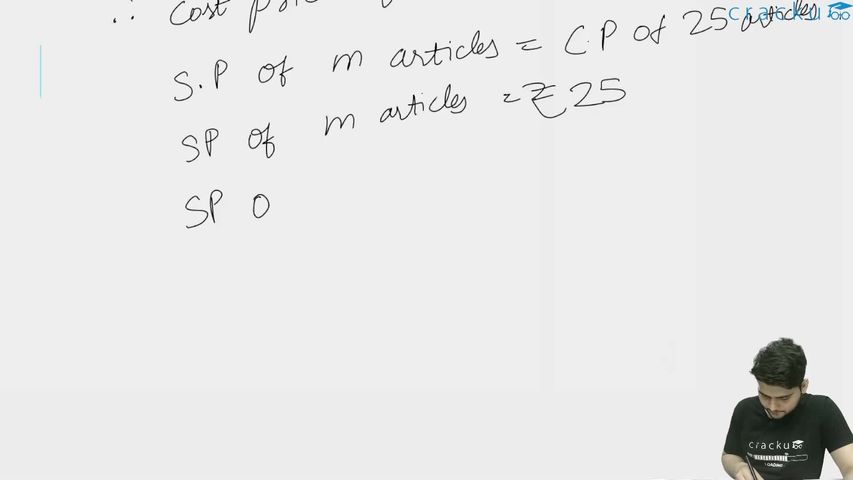 ∴ Cost
S.P of m articles = C.P of 25 articles
SP of m articles = ₹ 25
SP O
cracku
cracku
LOADING